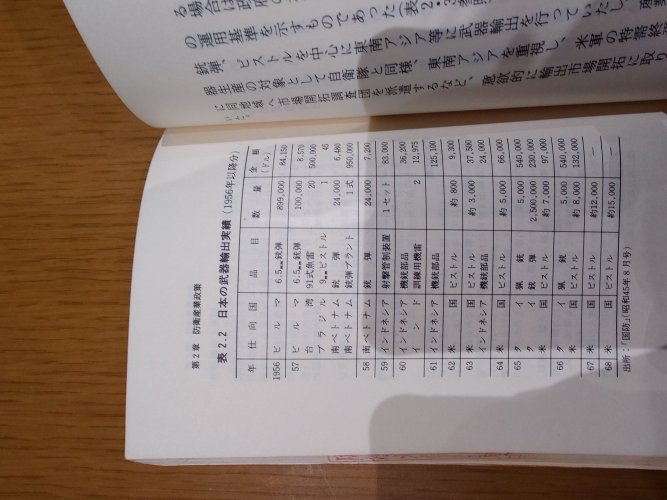 る場合は政府の
の運用基準を示すものであった(表2・3参照
銃弾、ピストルを中心に東南アジア等に武器輸出を行っていたし、産業
器生産の対象として自衛隊と同様、東南アジアを重視し、米軍の特需終
に同地域へ市場開拓調査団を派遣するなど、意欲的に輸出市場開拓に取り
第2章 防衛産業政策
表 2.2 日本の武器輸出実績(1956年以降分)
年 仕向国 品目 数量 金額(ドル)
1956 ビルマ 6.5㎜銃弾 899,000 84,150
57 ビルマ 6.5㎜銃弾 100,000 8,570
台湾 91式魚雷 20 500,000
ブラジル 9㎜ピストル 1 45
南ベトナム 銃弾 24,000 6,480
南ベトナム 銃弾プラント 1式 950,000
58 南ベトナム 銃弾 24,000 7,200
59 インドネシア 射撃管制装置 1セット 83,000
60 インドネシア 機銃部品 36,200
インド 訓練用機雷 2 12,975
61 インドネシア 機銃部品 125,100
62 米国 ピストル 約 800 9,300
63 米国 ピストル 約 3,000 37,500
インドネシア 機銃部品 24,000
64 米国 ピストル 約 5,000 66,000
65 タイ 猟銃 5,000 540,000
タイ 銃弾 2,500,000 230,000
米国 ピストル 約 7,000 97,000
66 タイ 猟銃 5,000 540,000
米国 ピストル 約 8,000 132,000
67 米国 ピストル 約12,000 —
68 米国 ピストル 約15,000 —
出所:「国防」(昭和45年8月号)